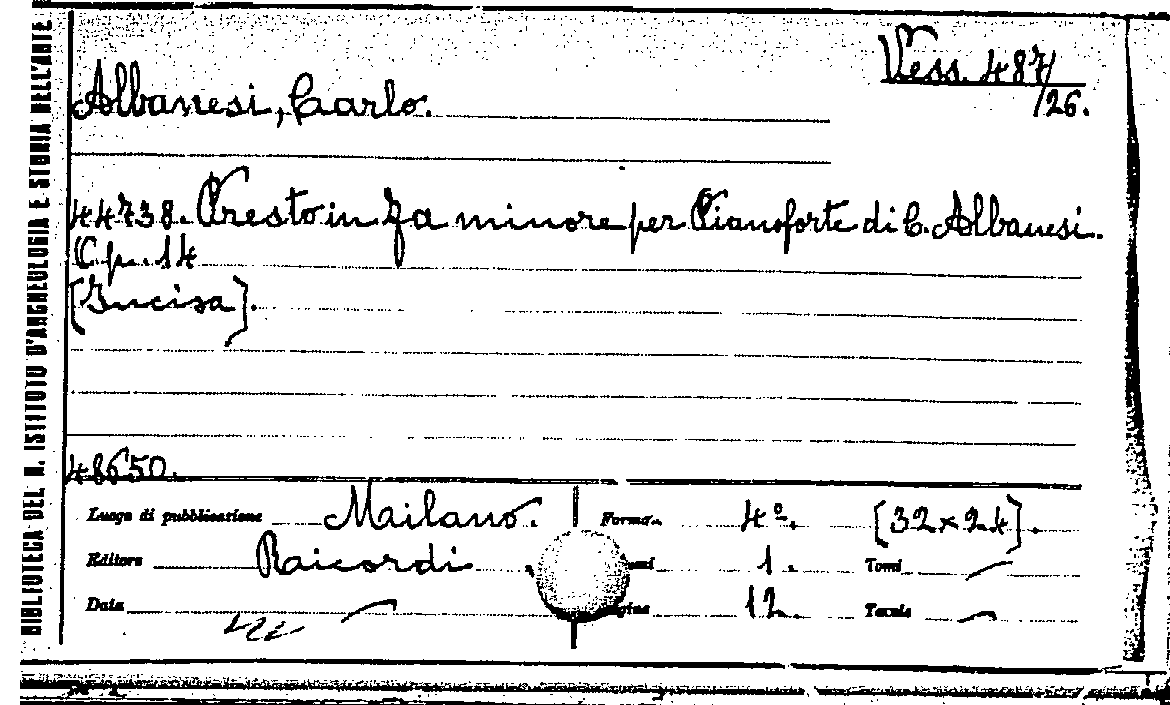 BIBLIOTECA DEL R. ISTITUTO D'ARCHEOLOGIA E STORIA DELL'ARTE
Vess. 487/
/26.
Albanesi, Carlo.
44738. Presto in Fa minore per Pianoforte di C. Albanesi.
Op. 14
[Incisa].
48650.
Luogo di pubblicazione Milano. Formato 4º. [32×24].
Editore Ricordi. 1. Tomi
Data Pagine 12. Tavole